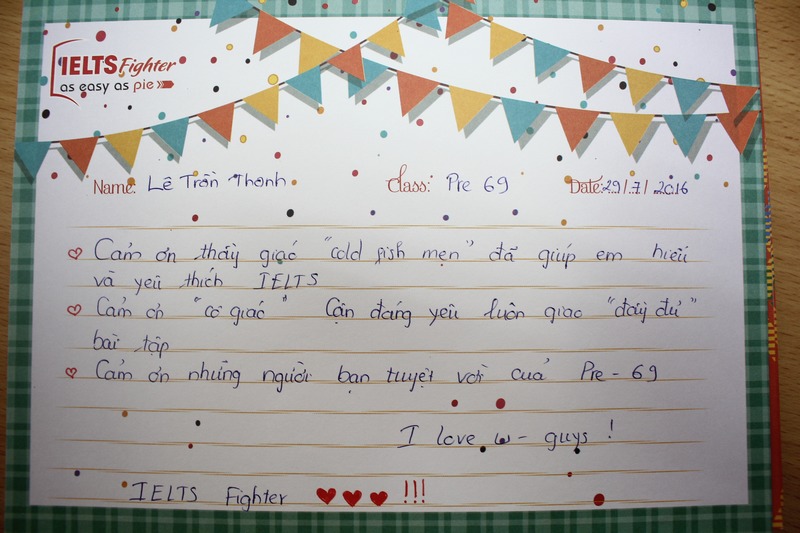 IELTS Fighter
as easy as pie
Name: Lê Trần Thanh Class: Pre 69 Date: 29/7/2016
Cảm ơn thầy giáo "cold fish mẹn" đã giúp em hiểu
và yêu thích IELTS
Cảm ơn "cô giáo" Cận đáng yêu luôn giao "đầy đủ"
bài tập
Cảm ơn những người bạn tuyệt vời của Pre - 69
I love u - guys !
IELTS Fighter !!!